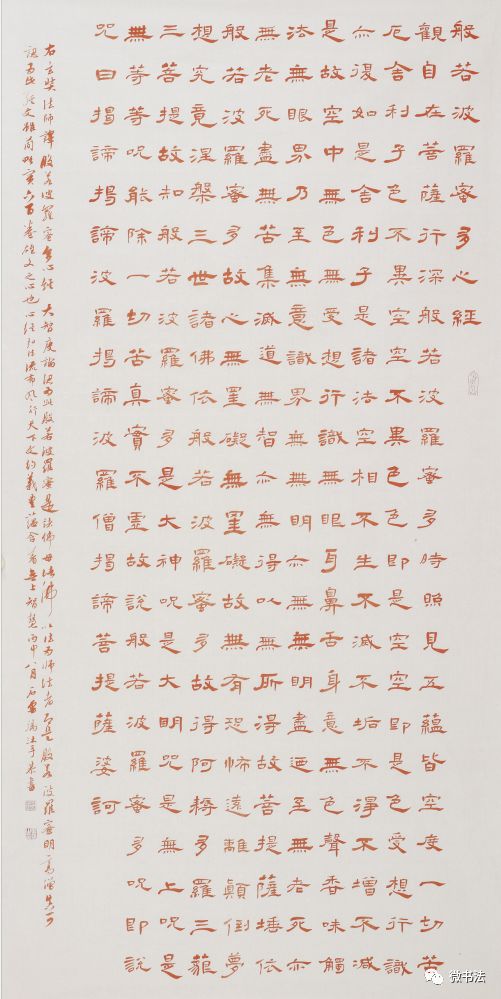 般若波羅蜜多心經
觀自在菩薩行深般若波羅蜜多時照見五蘊皆空度一切苦
厄舍利子色不異空空不異色色即是空空即是色受想行識
亦復如是舍利子是諸法空相不生不滅不垢不淨不增不減
是故空中無色無受想行識無眼耳鼻舌身意無色聲香味觸
法無眼界乃至無意識界無無明亦無無明盡迺至無老死亦
無老死盡無苦集滅道無智亦無得以無所得故菩提薩埵依
般若波羅蜜多故心無罣礙無罣礙故無有恐怖遠離顛倒夢
想究竟涅槃三世諸佛依般若波羅蜜多故得阿耨多羅三藐
三菩提故知般若波羅蜜多是大神呪是大明呪是無上呪是
無等等呪能除一切苦真實不虛故說般若波羅蜜多呪即說
呪曰揭諦揭諦波羅揭諦波羅僧揭諦菩提薩婆訶
右玄奘法師譯般若波羅蜜多心經大智度論認為此般若波羅蜜是諸佛母諸佛以法為師法者即是般若波羅蜜明高僧真可
認為此經文雖簡實六百卷雄文之心也心經弘法流布風行天下文約義豐蘊含有無上智慧丙申八月石雲恭書
微书法